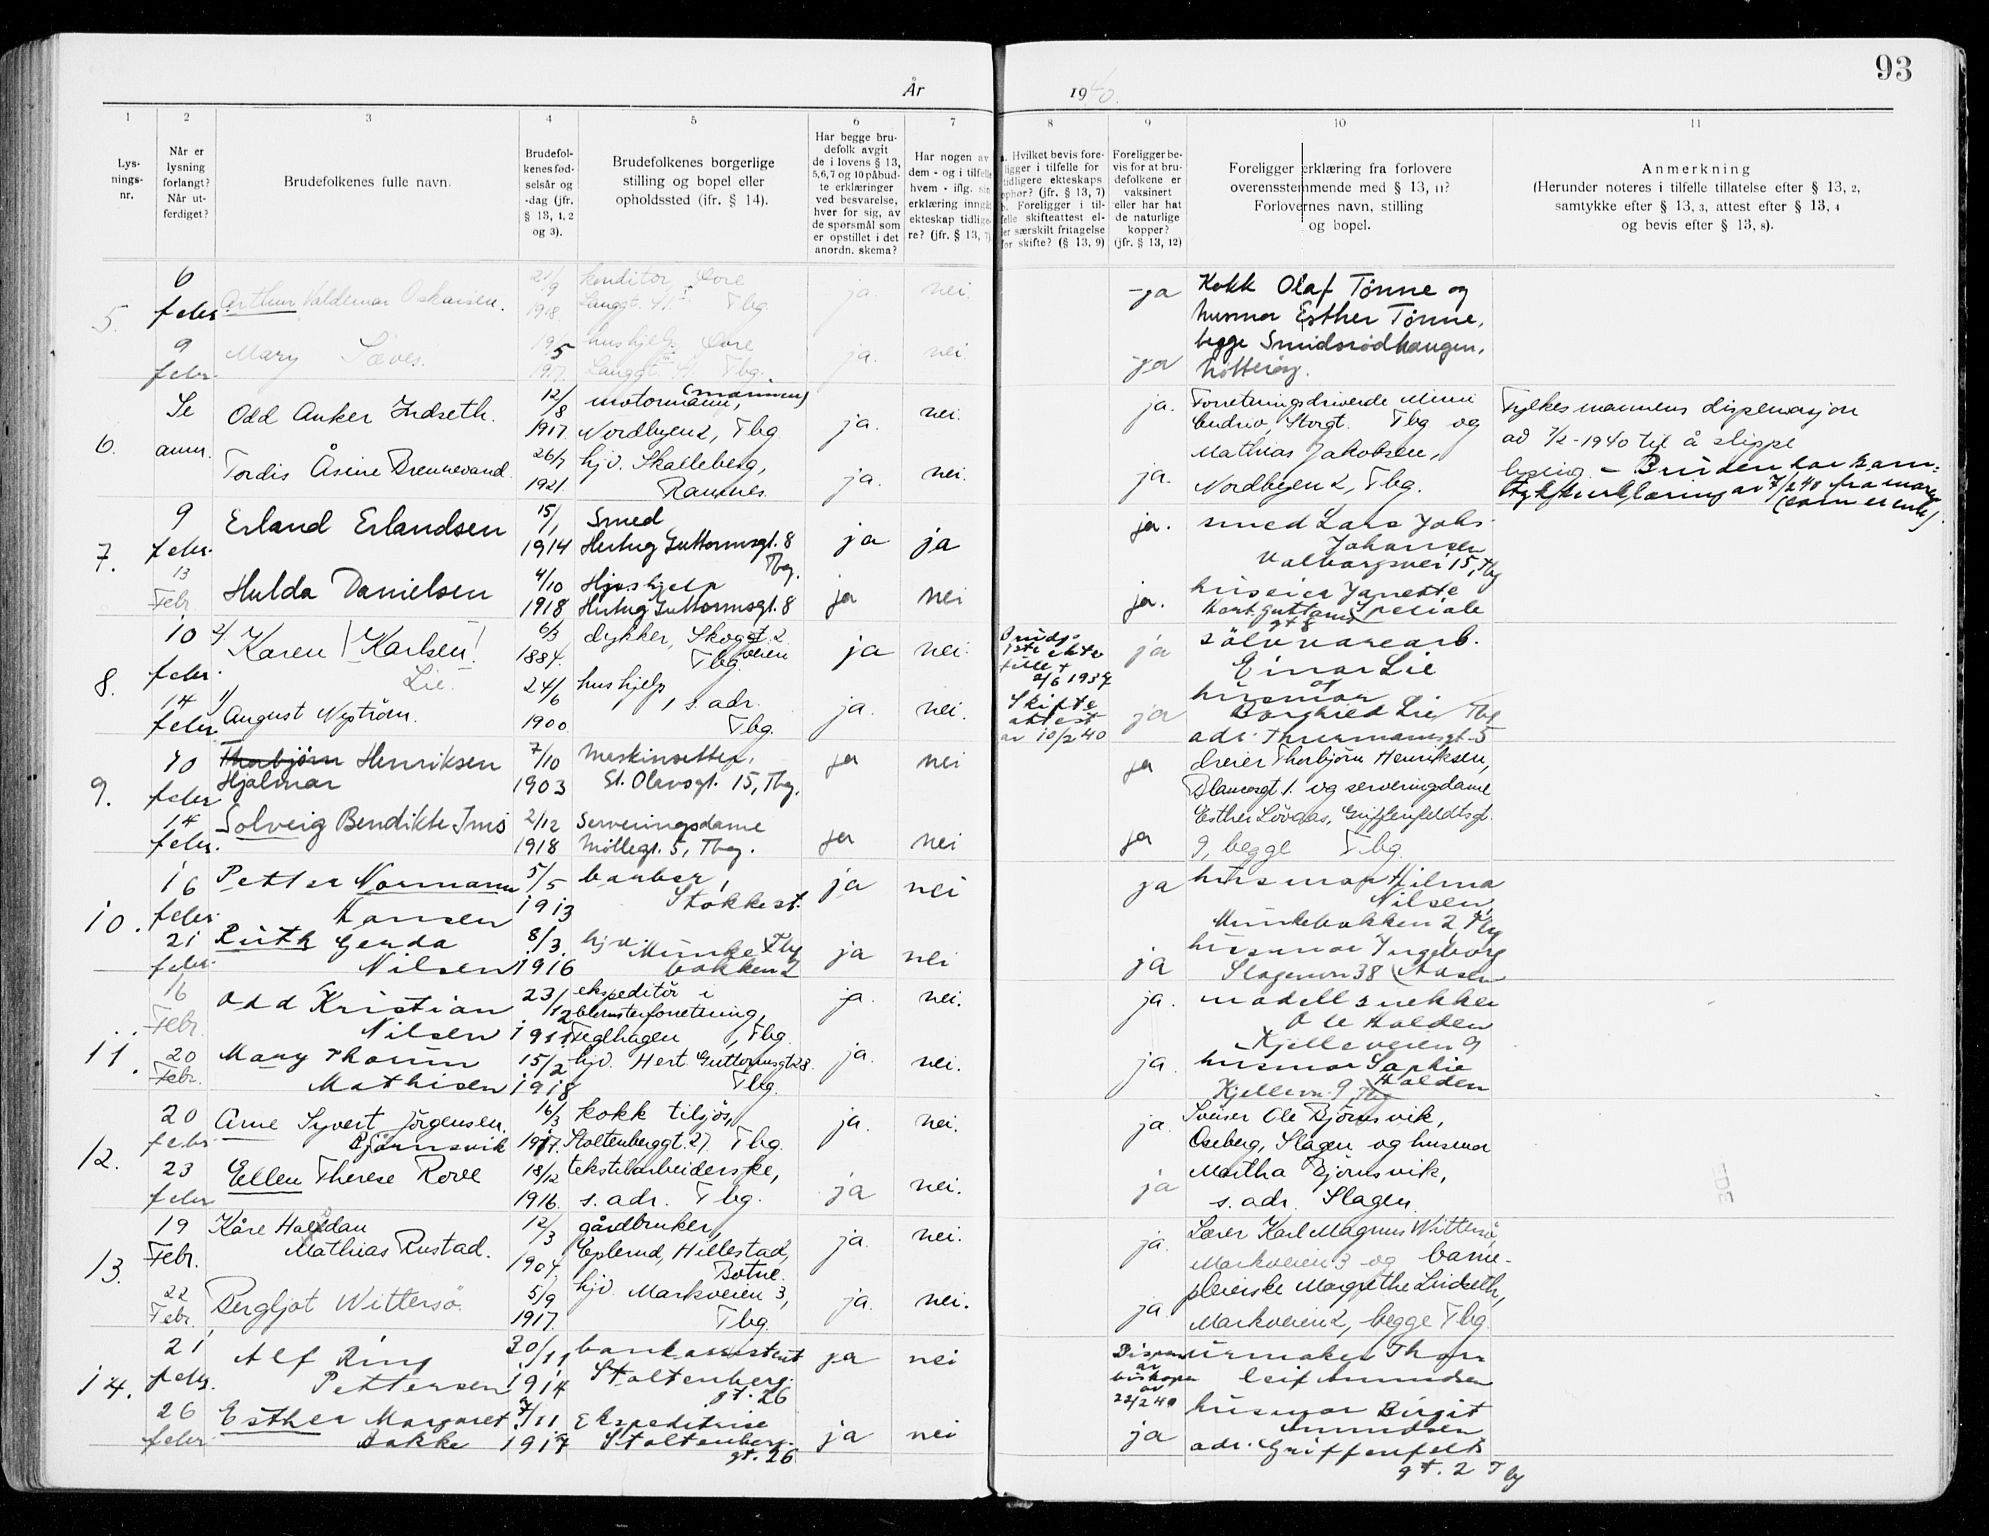 93
År 1940.
1 2 3 4 5 6 7 8 9 10 11
Lys-
nings-
nr.
Når er
lysning
forlangt?
Når ut-
ferdiget?
Brudefolkenes fulle navn.
Brudefol-
kenes fød-
selsår og
-dag (jfr.
§ 13, 1, 2
og 3).
Brudefolkenes borgerlige
stilling og bopel eller
opholdssted (ifr. § 14).
Har begge bru-
defolk avgit
de i lovens § 13,
5,6,7 og 10 påbud-
te erklæringer
ved besvarelse,
hver for sig, av
de spørsmål som
er opstillet i det
anordn. skema?
Har nogen av
dem - og i tilfelle
hvem - iflg. sin
erklæring inngått
ekteskap tidlige-
re? (jfr. § 13, 7)
a. Hvilket bevis fore-
ligger i tilfelle for
tidligere ekteskaps
ophør? (jfr. § 13, 7)
b. Foreligger i til-
felle skifteattest el-
ler særskilt fritagelse
for skifte? (§ 13, 9)
Foreligger be-
vis for at bru-
defolkene er
vaksinert
eller har hat
de naturlige
kopper?
(jfr. § 13, 12)
Foreligger erklæring fra forlovere
overensstemmende med § 13, 11?
Forlovernes navn, stilling
og bopel.
Anmerkning
(Herunder noteres i tilfelle tillatelse efter § 13, 2,
samtykke efter § 13, 3, attest efter § 13, 4
og bevis efter § 13, 8).
5.
6
febr
9
febr.
Arthur Valdemar Oskarsen.
21/9
1918.
konditor, Øvre
Langgt. 41. Tbg.
ja. nei.
Mary Sæves.
19/5
1917.
hushjelp Øvre
Langgt. 41. Tbg.
ja. nei.
ja
ja
Kokk Olaf Tønne og
husmor Esther Tønne,
begge Smidsrødhaugen,
Nøtterøy.
6.
Se
anm.
Odd Anker Indseth.
12/8
1917.
motormann, (marinen)
Nordbyen 2, Tbg
ja. nei.
Tordis Åsine Brennevand
26/7
1921.
hjv. Skalleberg,
Ramnes.
ja. nei.
ja.
ja.
Forretningsdrivende Mimi
Storgt. Tbg og
Mathias Jakobsen,
Nordbyen 2, Tbg.
Fylkesmannens dispensasjon
av 7/2-1940 til å slippe
lysning - Bruden har sam-
tykkeerklæring av 7/2 40 fra moren
(som er enke).
7.
9
febr.
13
Febr.
Erland Erlandsen
15/1
1914
Smed
Hertug Guttormsgt. 8
Tbg.
ja ja
Hulda Danielsen
4/10
1918
Hushjelp
Hertug Guttormsgt. 8
ja nei
ja.
ja.
smed Lars Johs.
Johansen
Valborgsvei 15, Tbg
Janette
gt 8
8.
10
febr.
14
febr
2/ Karen Karlsen
Lie.
6/3
1884.
dykker, Skoggt. 2
veien
Tbg.
ja nei.
1/ August Nyström.
24/6
1900
hushjelp
, s. adr.
Tbg.
ja. nei.
2/6 1937
Skifte
attest
av 10/2 40
ja
ja
sølvvarearb.
Einar Lie
og
husmor
Borghild Lie, Tbg
adr. Thurmannsgt. 5
9.
10
febr
14
febr.
Thorbjörn Henriksen
Hjalmar
7/10
1903
Maskinsetter,
St. Olavsgt. 15, Tbg.
ja nei
Solveig Bendikte Juns
2/12
1918
Serveringsdame
Møllegt. 5, Tbg.
ja nei
ja
ja
dreier Thorbjörn Henriksen,
gt 1. og serveringsdame
Esther Lövaas, Griffenfeldtsgt.
9, begge Tbg.
10.
16
febr.
21
febr.
Petter Normann
Hansen
5/5
1913
barber,
Stokke st.
ja nei
Ruth Gerda
Nilsen
8/3
1916
hjv. Munke Tbg
bakken 2
ja nei
ja
ja
husmor Hilma
Nilsen,
Munkebakken 2, Tbg
husmor Ingeborg
Slagenvn 38
11.
16
Febr.
20
Febr.
Odd Kristian
Nilsen
23/12
1911
ekspeditör i
blomsterforretning,
Teglhagen, Tbg.
ja. nei.
Mary Thorun
Mathisen
15/2
1918
hjv. Hert. Guttormsgt 28.
Tbg.
ja. nei.
ja.
ja.
modellsnekker
Ole Holden
Kjelleveien 9
husmor Sophie
Holden
Kjellevn. 9, Tbg
12.
20
febr
23
febr
Arne Syvert Jörgensen
Björnsvik
16/3
1917.
kokk tilsjøs,
Stoltenberggt. 27 Tbg.
ja. nei.
Ellen Therese Rove
18/12
1916.
tekstilarbeiderske,
s. adr. Tbg.
ja nei.
ja.
ja
Sveiser Ole Björnsvik,
Oseberg, Slagen og husmor
Martha Björnsvik,
s. adr. Slagen.
13.
19
Febr.
22
Febr.
Kåre Halfdan
Mathias Rustad.
12/3
1904
gårdbruker,
Eplerud, Hillestad,
Botne.
ja. nei.
Bergljot Wittersö.
5/9
1917.
hjv. Markveien 3,
Tbg.
ja. nei.
ja.
ja.
Lærer Karl Magnus Wittersö,
Markveien 3 og barne-
pleierske Margrethe Lindseth,
Markveien 2, begge Tbg.
14.
21
febr.
26
febr
Alf Ring
Pettersen
30/11
1914
bankassistent
Stoltenberg-
gt. 26
ja nei
Esther Margaret
Bakke
7/11
1917
Ekspeditrise
Stoltenberg-
gt. 26
ja nei
Dispens
av
biskopen
av
22/2 40
ja
urmaker Thor
Leif Amundsen
husmor Birgit
Amundsen
adr. Griffenfelds
gt. 2 Tbg